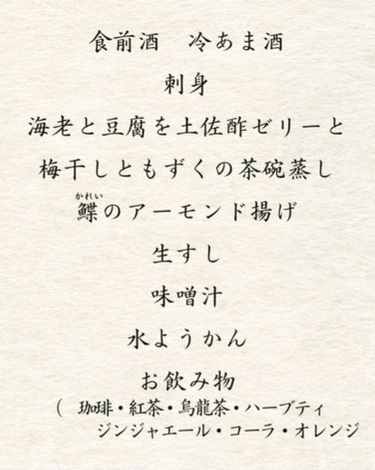 食前酒　冷あま酒
刺身
海老と豆腐を土佐酢ゼリーと
梅干しともずくの茶碗蒸し
かれい
鰈のアーモンド揚げ
生すし
味噌汁
水ようかん
お飲み物
（　珈琲・紅茶・烏龍茶・ハーブティ
ジンジャエール・コーラ・オレンジ